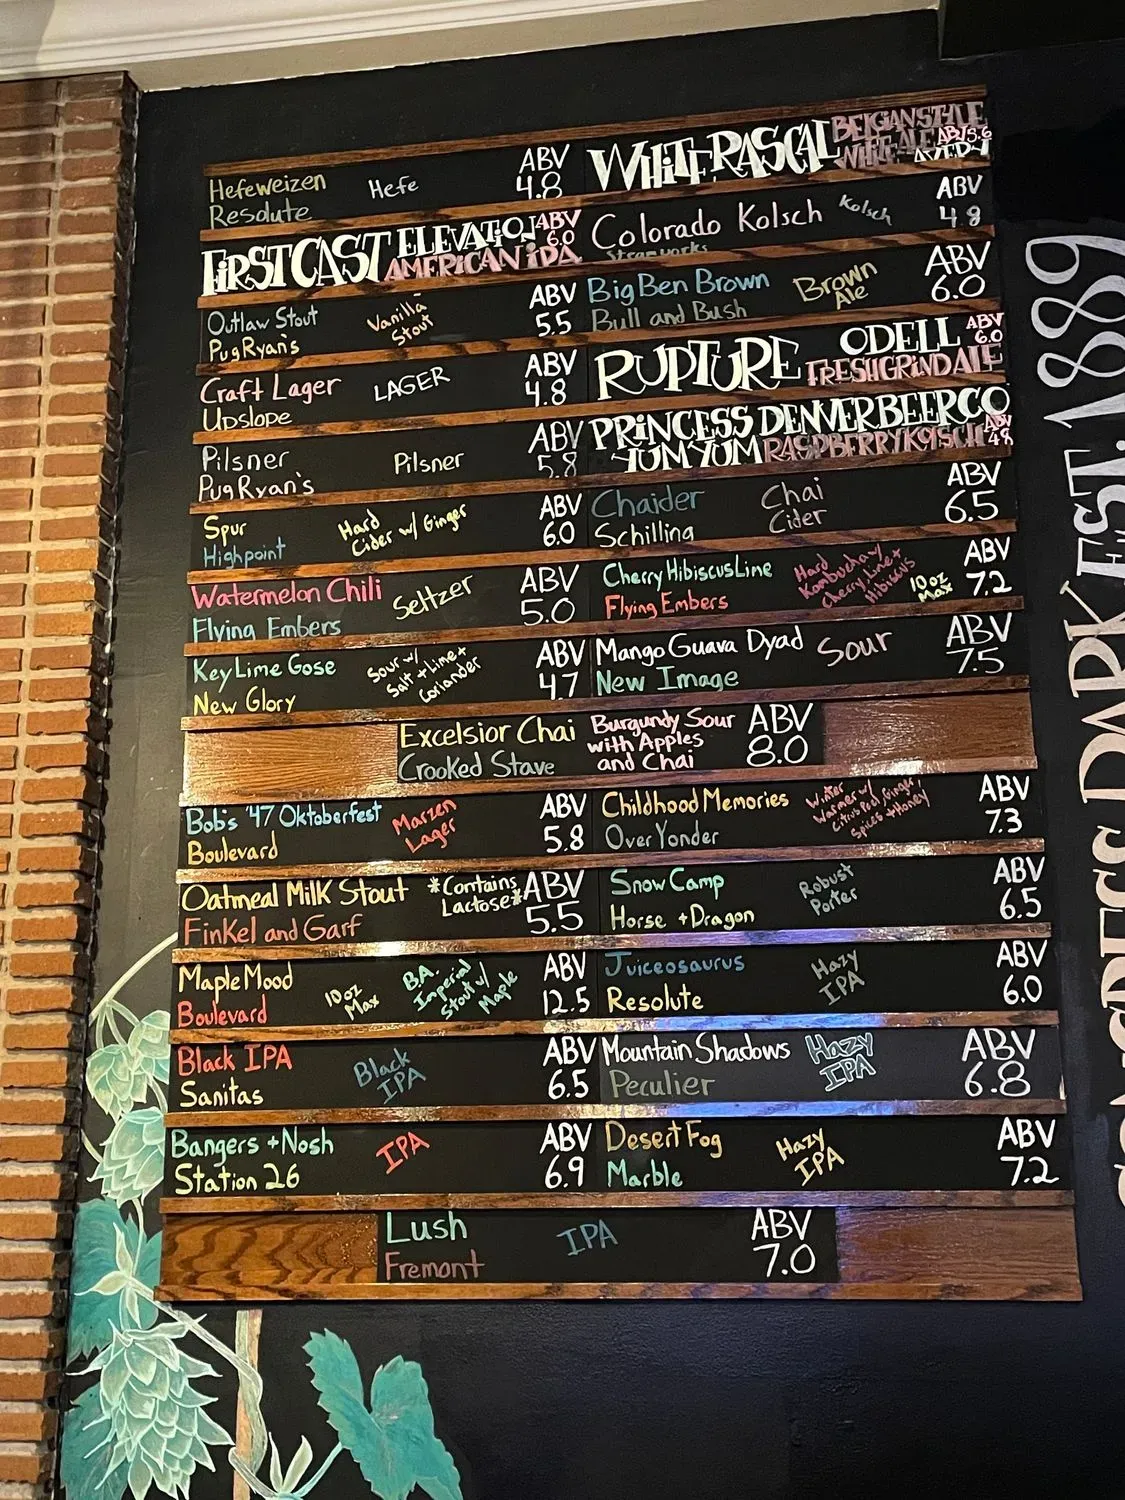 Hefeweizen Hefe ABV
Resolute 4.8
WHITE RASCAL BELGIAN STYLE
WHITE ALE ABV 5.6
AVERY
FIRST CAST ELEVATION ABV 6.0
AMERICAN IPA
Colorado Kolsch Kolsch ABV
Steamworks 4.8
Outlaw Stout Vanilla Stout ABV
PugRyan's 5.5
Big Ben Brown Brown Ale ABV
Bull and Bush 6.0
Craft Lager LAGER ABV
Upslope 4.8
RUPTURE ODELL ABV 6.0
FRESH GRIND ALE
Pilsner Pilsner ABV
PugRyan's 5.8
PRINCESS DENVER BEER CO
YUM YUM RASPBERRY KOLSCH ABV 4.8
Spur Hard ABV
Highpoint Cider w/ Ginger 6.0
Chaider Chai ABV
Schilling Cider 6.5
Watermelon Chili Seltzer ABV
Flying Embers 5.0
Cherry Hibiscus Lime Hard Kombucha w/ Cherry, Lime + Hibiscus 10 oz Max ABV
Flying Embers 7.2
Key Lime Gose Sour w/ Salt + Lime + Coriander ABV
New Glory 4.7
Mango Guava Dyad Sour ABV
New Image 7.5
Excelsior Chai Burgundy Sour with Apples and Chai ABV
Crooked Stave 8.0
Bob's '47 Oktoberfest Marzen Lager ABV
Boulevard 5.8
Childhood Memories Winter Warmer w/ Citrus Peel Ginger, Spices + Honey ABV
Over Yonder 7.3
Oatmeal Milk Stout *Contains Lactose* ABV
Finkel and Garf 5.5
Snow Camp Robust Porter ABV
Horse + Dragon 6.5
Maple Mood 10 oz Max B.A. Imperial Stout w/ Maple ABV
Boulevard 12.5
Juiceosaurus Hazy IPA ABV
Resolute 6.0
Black IPA Black IPA ABV
Sanitas 6.5
Mountain Shadows Hazy IPA ABV
Peculier 6.8
Bangers + Nosh IPA ABV
Station 26 6.9
Desert Fog Hazy IPA ABV
Marble 7.2
Lush IPA ABV
Fremont 7.0
PARK EST. 1889